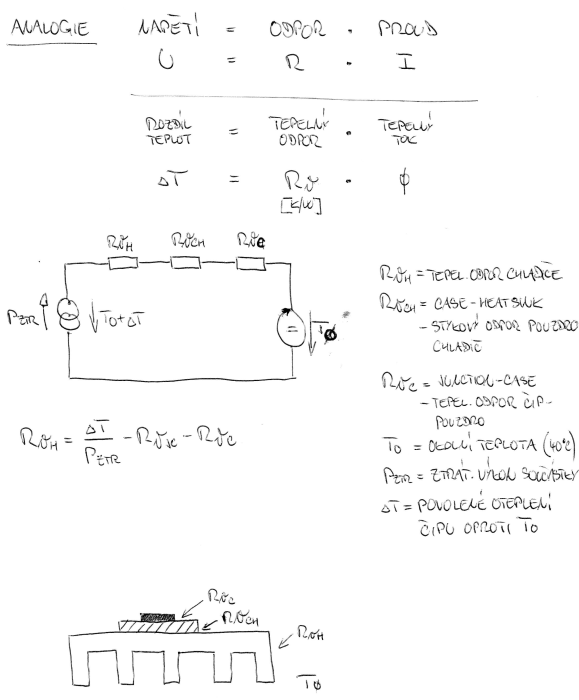 ANALOGIE NAPĚTÍ = ODPOR · PROUD
U = R · I
ROZDÍL TEPLOT = TEPELNÝ ODPOR · TEPELNÝ TOK
ΔT = Rϑ · ϕ
[K/W]
RϑH RϑCH RϑC
PZTR T0+ΔT = T0
RϑH = TEPEL. ODPOR CHLADIČE
RϑCH = CASE-HEATSINK
- STYKOVÝ ODPOR POUZDRO
CHLADIČ
RϑC = JUNCTION-CASE
- TEPEL. ODPOR ČIP-
POUZDRO
T0 = OKOLNÍ TEPLOTA (40°C)
PZTR = ZTRÁT. VÝKON SOUČÁSTKY
ΔT = POVOLENÉ OTEPLENÍ
ČIPU OPROTI T0
RϑH = ΔT/PZTR - RϑJC - RϑC
RϑC
RϑCH
RϑH
T0